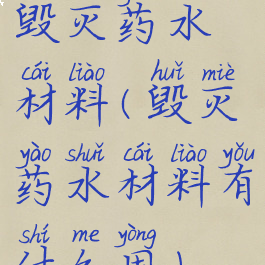 毁灭药水
cái liào huǐ miè
材料(毁灭
yào shuǐ cái liào yǒu
药水材料有
shí me yòng
什么用)